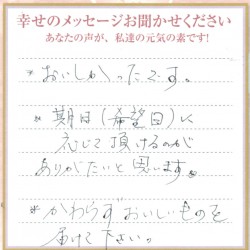 幸せのメッセージお聞かせください
あなたの声が、私達の元気の素です!
*おいしかったです。
*期日(希望日)に
応じて頂けるのが
ありがたいと思います。
*かわらずおいしいものを
届けて下さい。